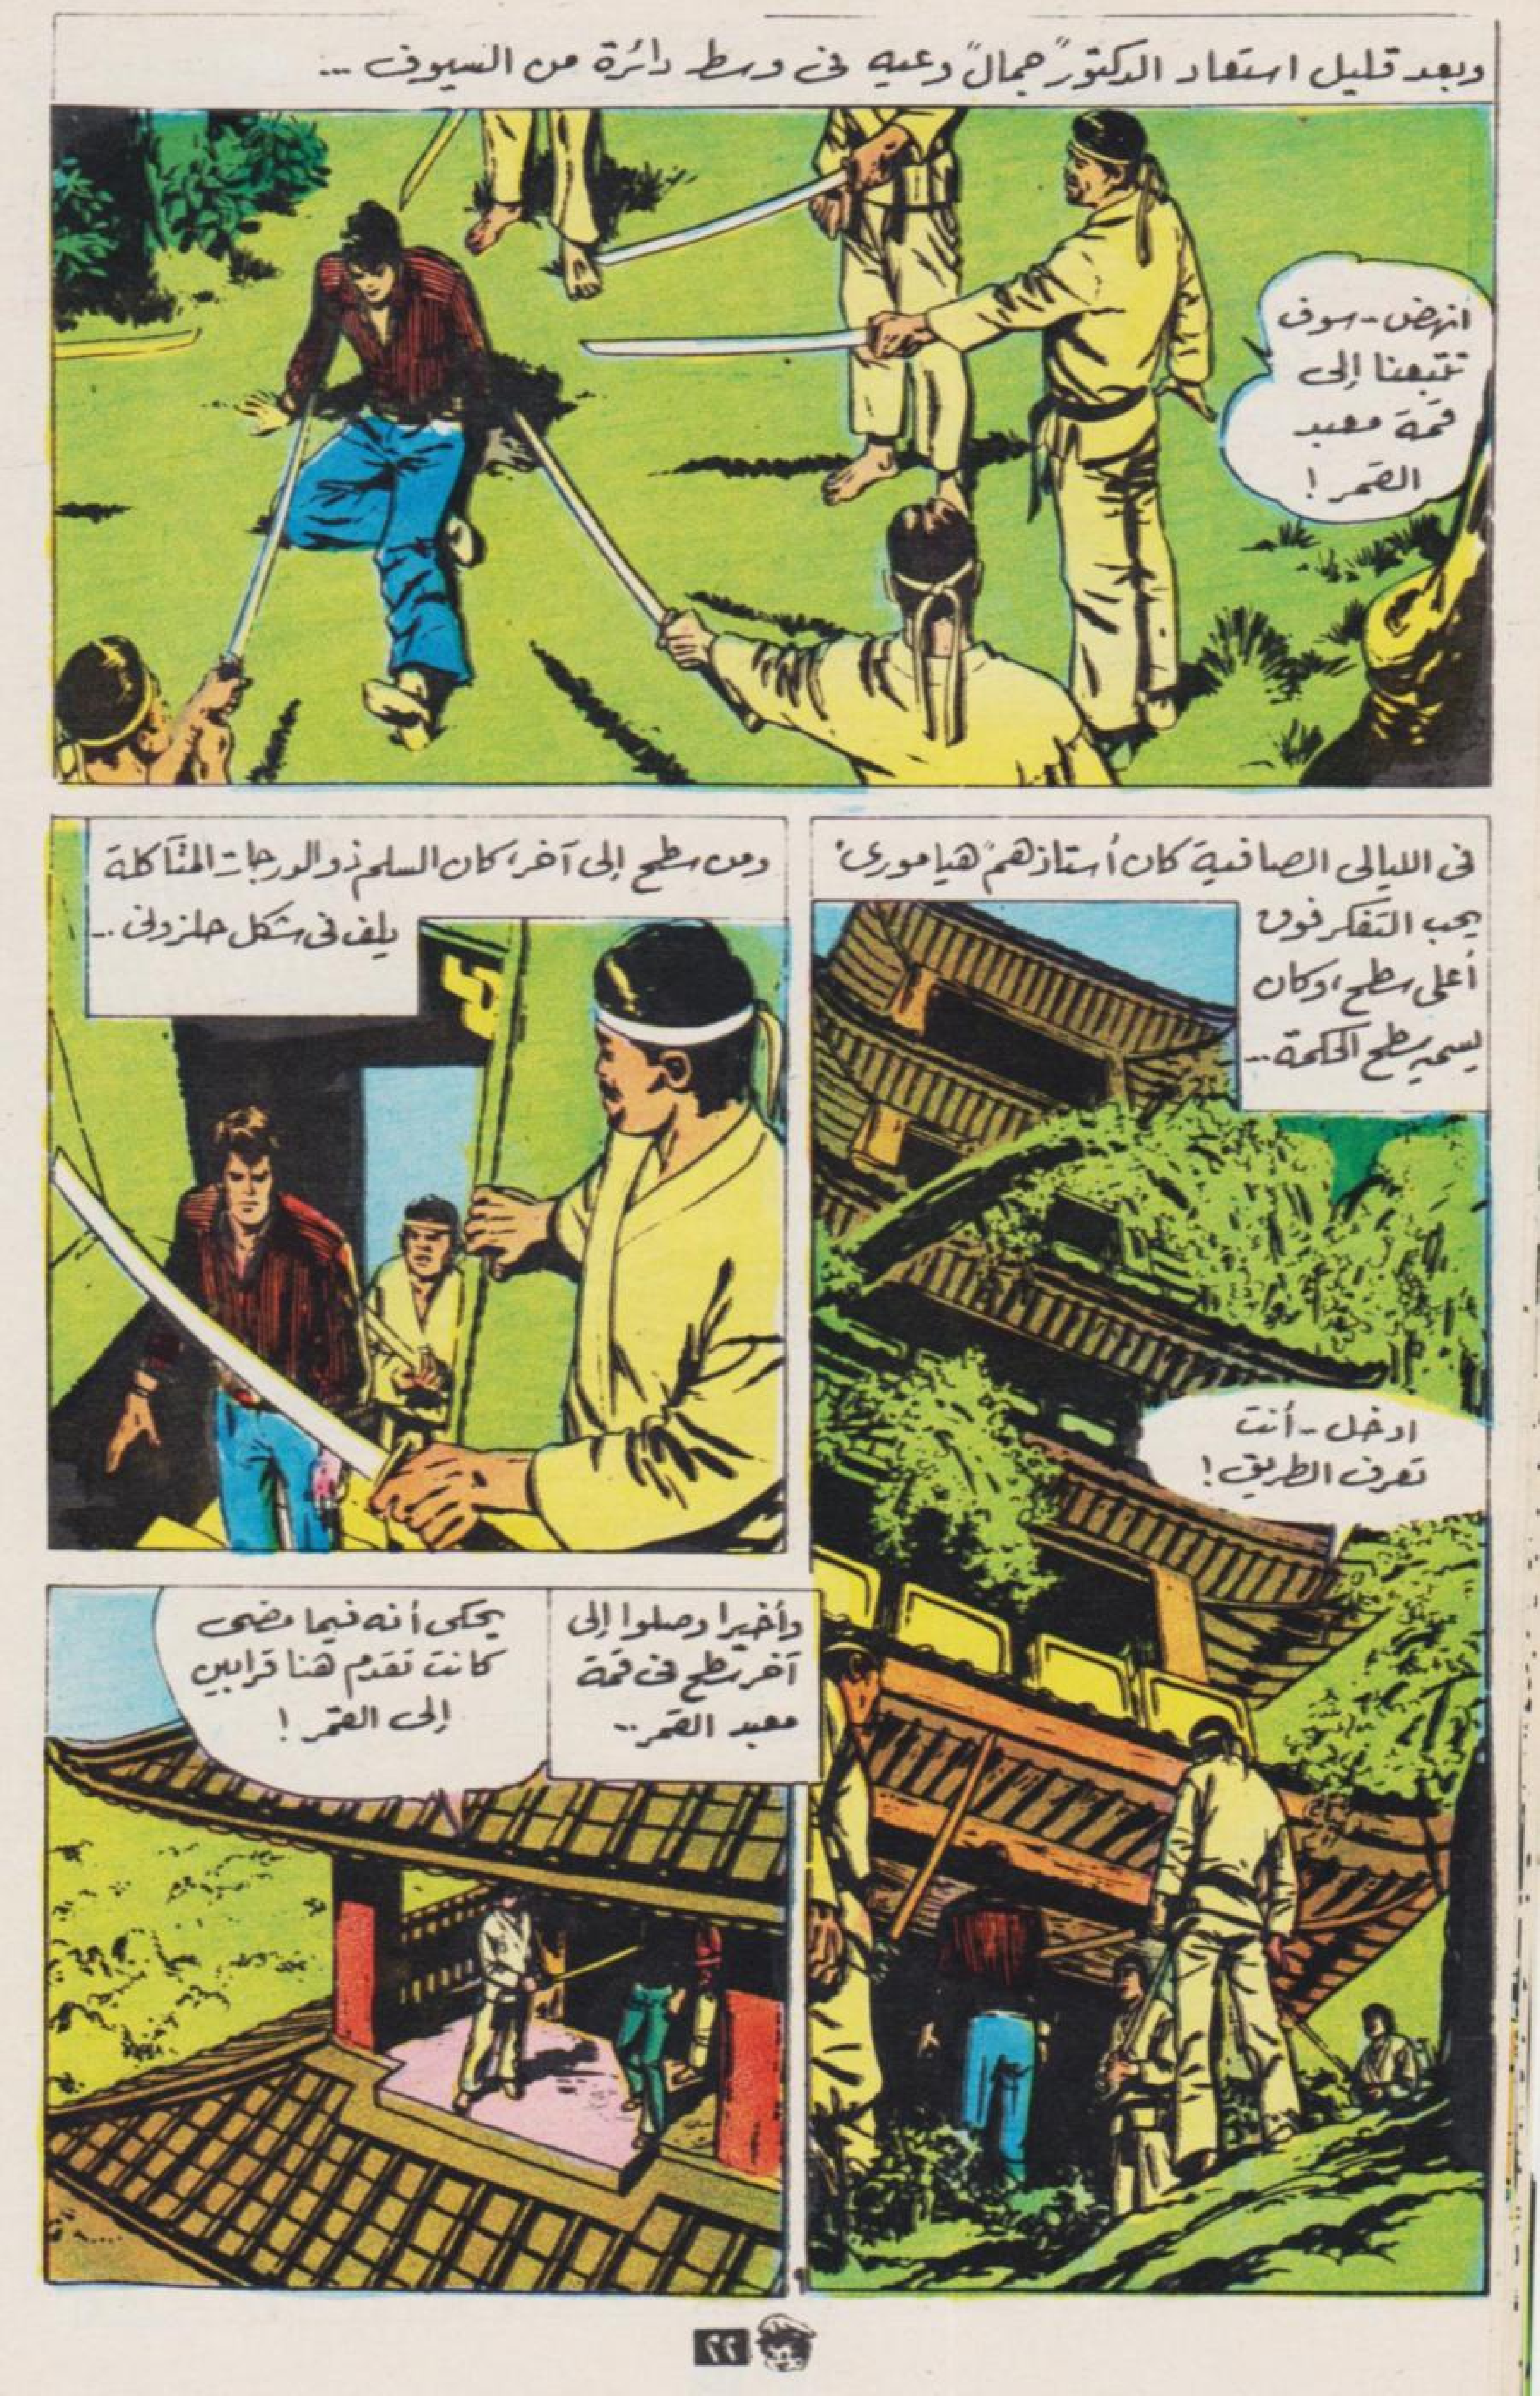 وبعد قليل استعاد الدكتور "جمال" وعيه فى وسط دائرة من السيوف ...
انهض .. سوف
تتبعنا إلى
قمة معبد
القمر !
فى الليالى الصافية كان أستاذهم "هيامورى"
يحب التفكر فوق
أعلى سطح ، وكان
يسميه سطح الحكمة ...
ادخل .. أنت
تعرف الطريق !
ومن سطح إلى آخر ، كان السلم ذو الدرجات المتآكلة
يلف فى شكل حلزونى ...
وأخيرا وصلوا إلى
آخر سطح فى قمة
معبد القمر ...
يحكى أنه فيما مضى
كانت تقدم هنا قرابين
إلى القمر !
٢٢